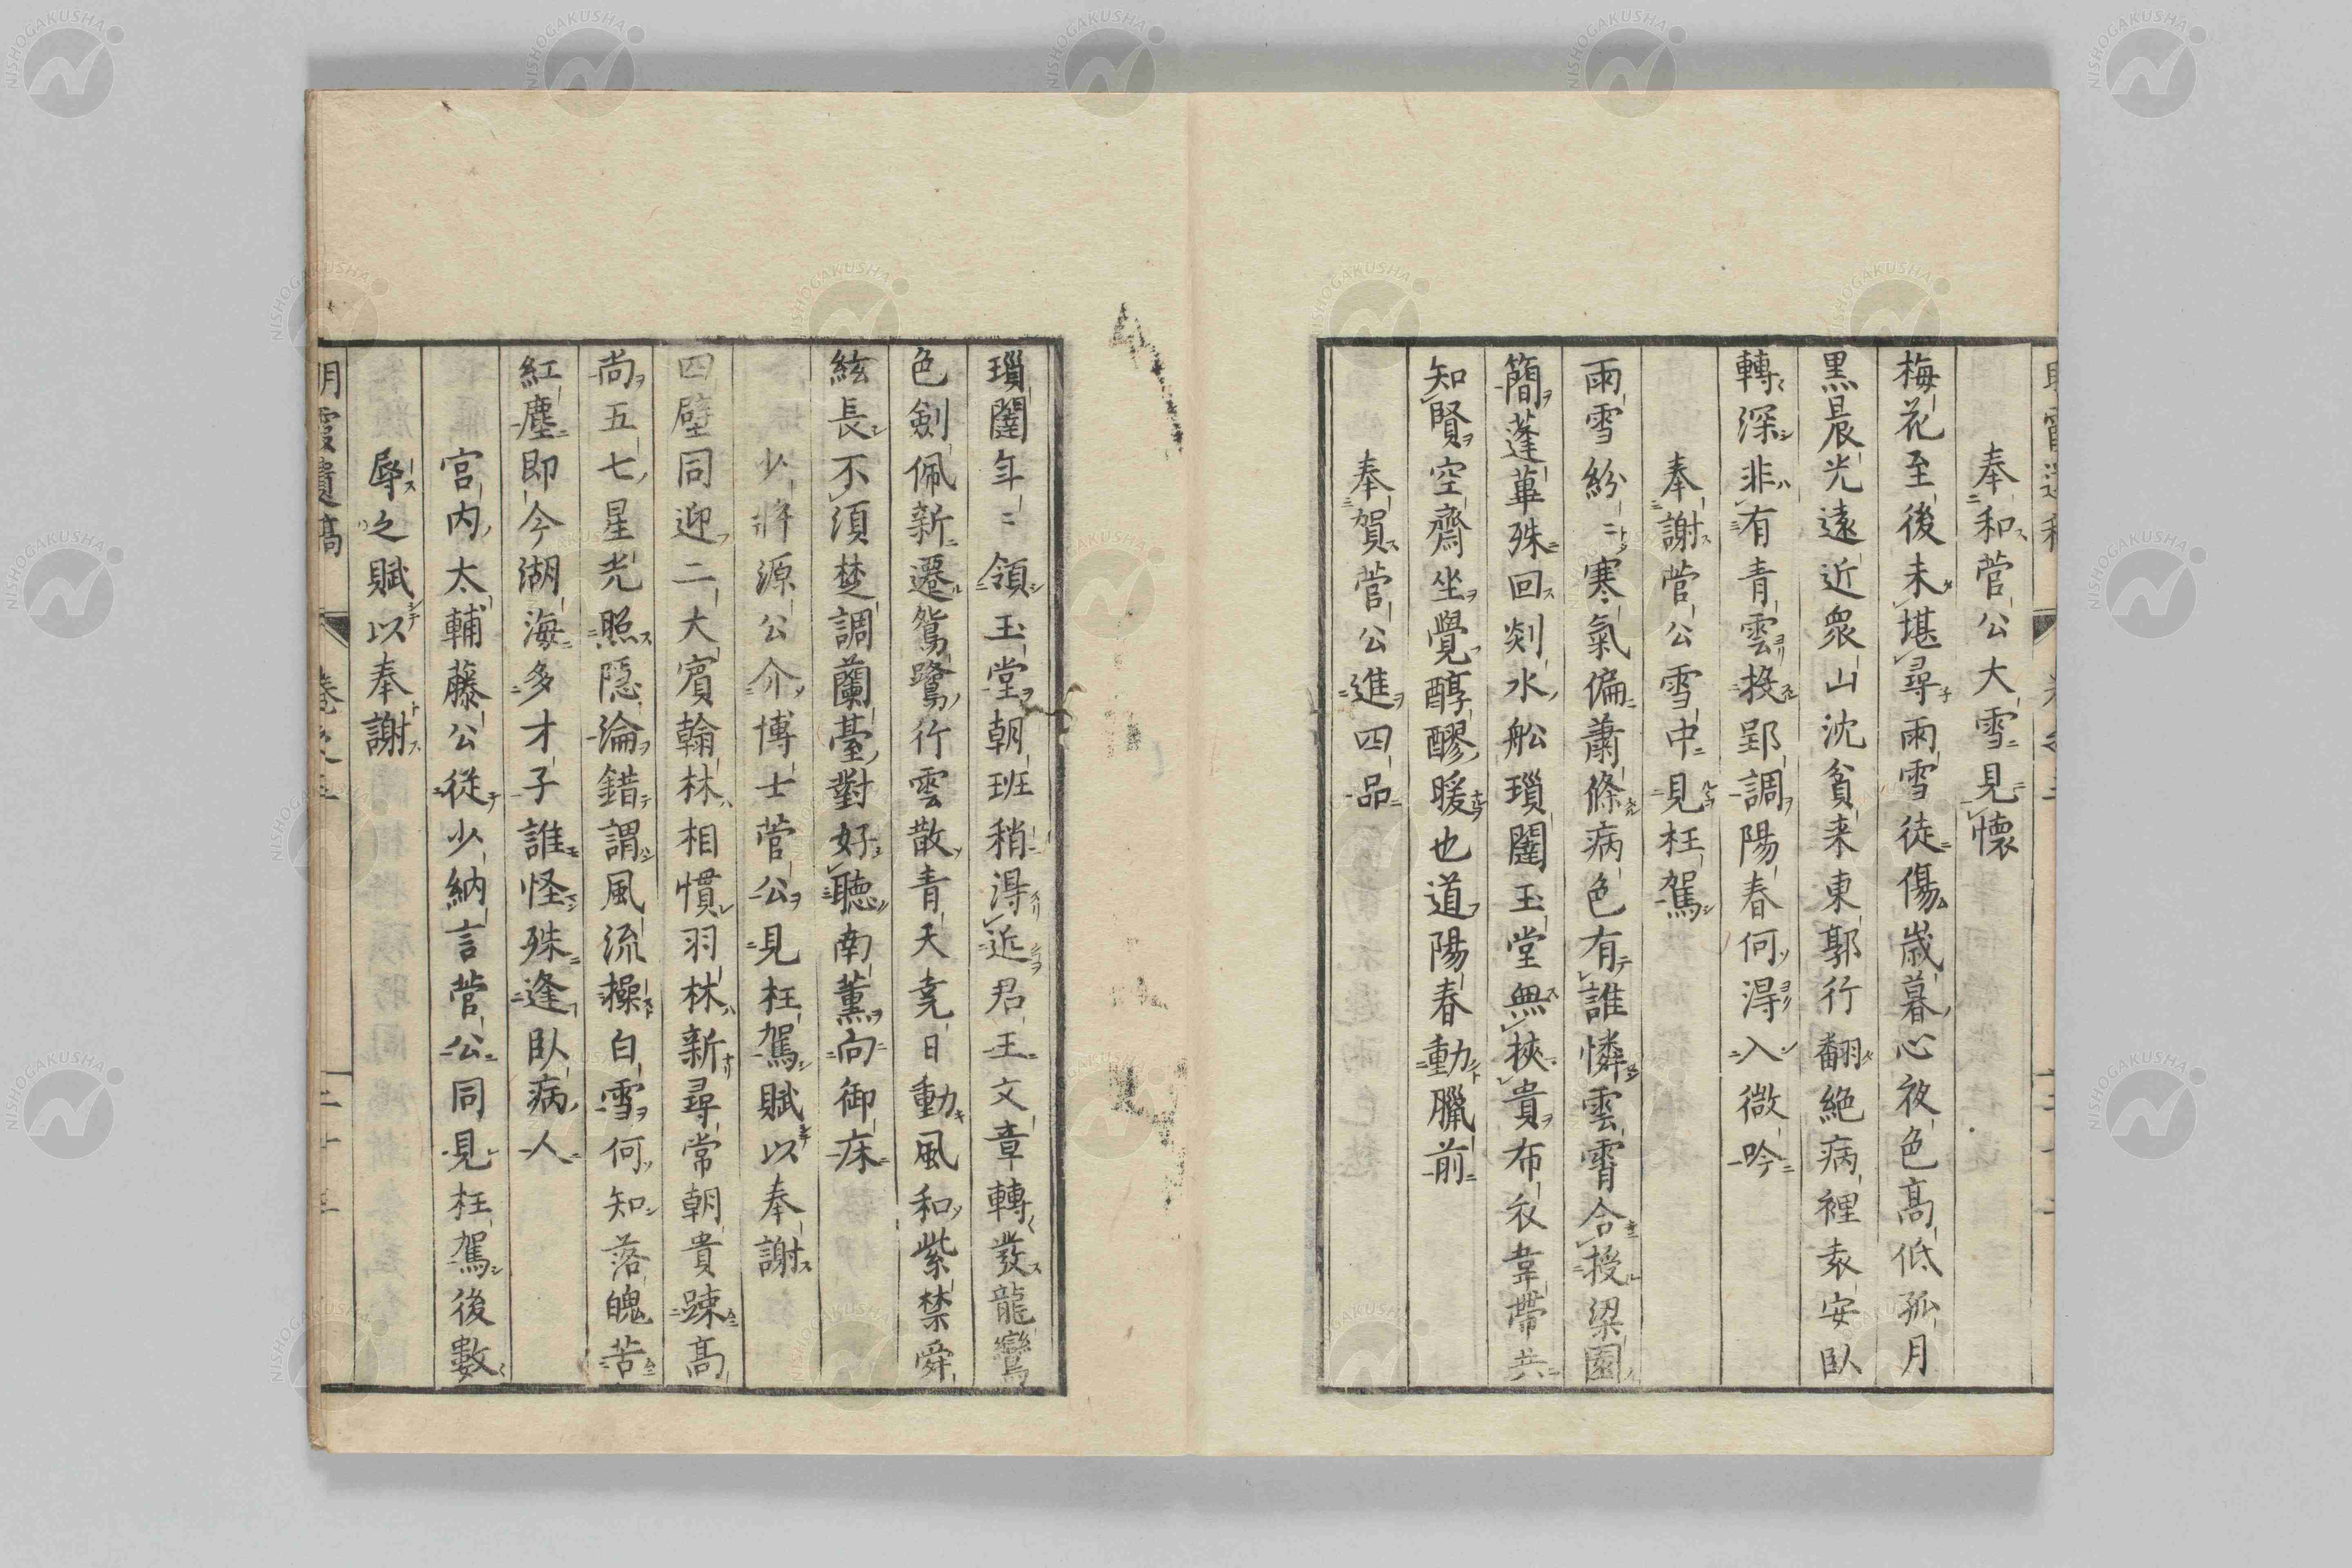 奉和菅公大雪見懷
梅花至後未堪尋雨雪徒傷歳暮心夜色髙低孤月
黒晨光遠近衆山沈貧来東郭行翻絶病裡袁安臥
轉深非有青雲投郢調陽春何得入微吟
奉謝菅公雪中見枉駕
雨雪紛〻寒氣偏蕭條病色有誰憐雲霄合授梁園
簡蓬蓽殊回剡水舩瑣闥玉堂無挾貴布衣韋帶共
知賢空齋坐覺醇醪暖也道陽春動臘前
奉賀菅公進四品
瑣闥年〻領玉堂朝班稍得近君王文章轉發龍鸞
色劍佩新遷鴛鷺行雲散青天堯日動風和紫禁舜
絃長不須楚調蘭臺對好聽南薫向御床
少將源公介博士菅公見枉駕賦以奉謝
四壁同迎二大賓翰林相慣羽林新尋常朝貴踈髙
尚五七星光照隠淪錯謂風流操白雪何知落魄苦
紅塵即今湖海多才子誰怪殊逢臥病人
宮内太輔藤公從少納言菅公同見枉駕後數
辱之賦以奉謝
明霞遺稿 卷之五